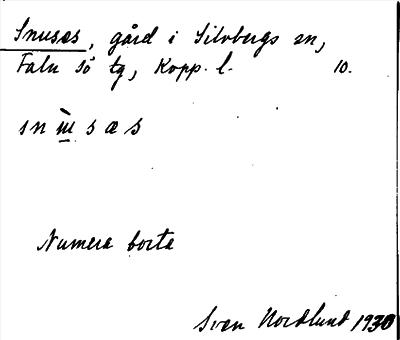 Snusas, gård i Silvbergs sn,
Falu sö tg, Kopp. l. 10.
sn s æ s
Numera borta
Sven Nordlund 1930